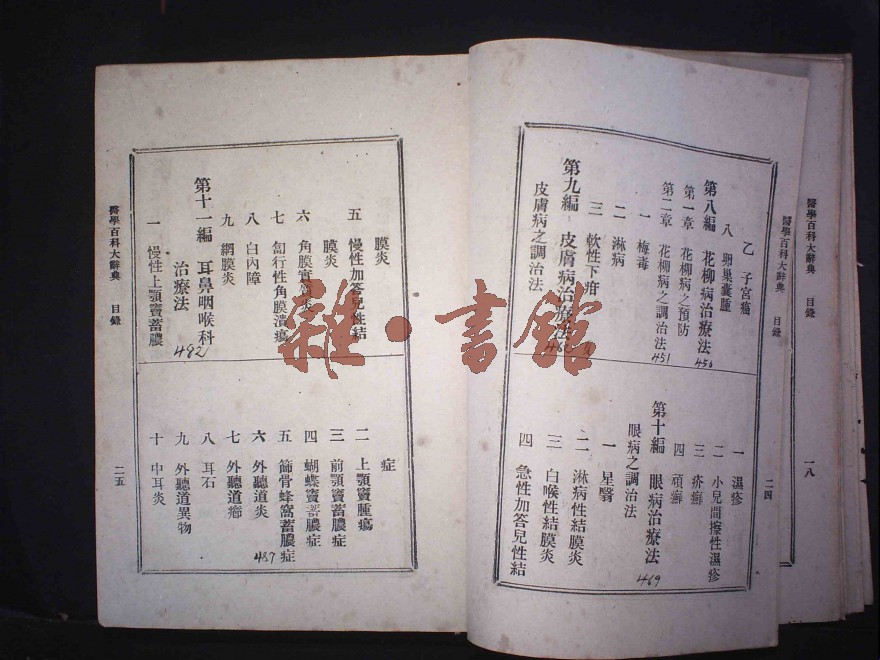 醫學百科大辭典 目錄
一八
醫學百科大辭典 目錄
二四
乙 子宮癌
八 卵巢囊腫
第八編 花柳病治療法
450
第一章 花柳病之預防
第二章 花柳病之調治法
451
一 梅毒
二 淋病
三 軟性下疳
第九編 皮膚病治療法
皮膚病之調治法
一 濕疹
二 小兒間擦性濕疹
三 疥癬
四 頑癬
第十編 眼病治療法
469
眼病之調治法
一 星翳
二 淋病性結膜炎
三 白喉性結膜炎
四 急性加答兒性結
膜炎
五 慢性加答兒性結
膜炎
六 角膜實質炎
七 匐行性角膜潰瘍
八 白內障
九 網膜炎
第十一編 耳鼻咽喉科
治療法
482
一 慢性上顎竇蓄膿
症
二 上顎竇腫瘍
三 前顎竇蓄膿症
四 蝴蝶竇蓄膿症
五 篩骨蜂窩蓄膿症
六 外聽道炎
487
七 外聽道癤
八 耳石
九 外聽道異物
十 中耳炎
醫學百科大辭典 目錄
二五
雜·書館